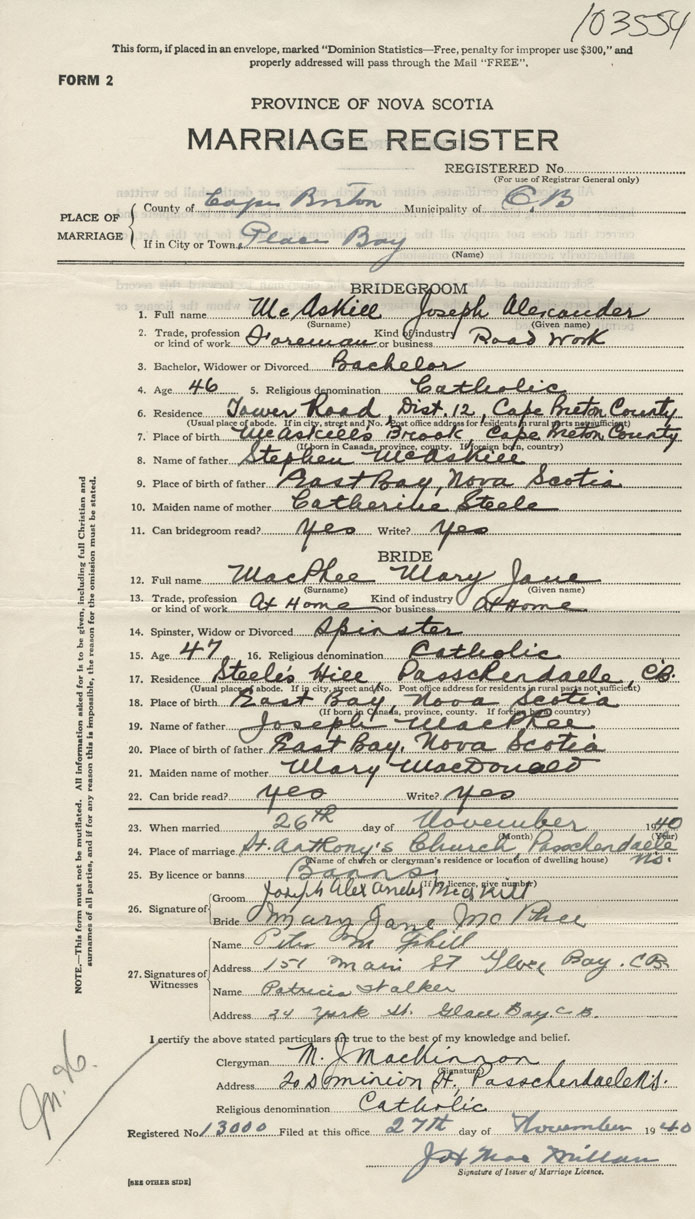 103554
This form, if placed in an envelope, marked "Dominion Statistics—Free, penalty for improper use $300," and
properly addressed will pass through the Mail "FREE".
FORM 2
PROVINCE OF NOVA SCOTIA
MARRIAGE REGISTER
REGISTERED No.
(For use of Registrar General only)
PLACE OF MARRIAGE
County of Cape Breton Municipality of C.B
If in City or Town, Glace Bay
(Name)
BRIDEGROOM
1. Full name McAskill Joseph Alexander
(Surname) (Given name)
2. Trade, profession or kind of work Foreman Kind of industry or business Road Work
3. Bachelor, Widower or Divorced Bachelor
4. Age 46 5. Religious denomination Catholic
6. Residence Tower Road, Dist. 12, Cape Breton County
(Usual place of abode. If in city, street and No. Post office address for residents in rural parts not sufficient)
7. Place of birth McAskill's Brook Cape Breton County
(If born in Canada, province, county. If foreign born, country)
8. Name of father Stephen McAskill
9. Place of birth of father East Bay, Nova Scotia
10. Maiden name of mother Catherine Steele
11. Can bridegroom read? yes Write? yes
BRIDE
12. Full name MacPhee Mary Jane
(Surname) (Given name)
13. Trade, profession or kind of work At Home Kind of industry or business At Home
14. Spinster, Widow or Divorced Spinster
15. Age 47 16. Religious denomination Catholic
17. Residence Steele's Hill, Passchendaele, C.B.
(Usual place of abode. If in city, street and No. Post office address for residents in rural parts not sufficient)
18. Place of birth East Bay, Nova Scotia
(If born in Canada, province, county. If foreign born, country)
19. Name of father Joseph MacPhee
20. Place of birth of father East Bay, Nova Scotia
21. Maiden name of mother Mary MacDonald
22. Can bride read? yes Write? yes
23. When married 26th day of November 1940
(Month) (Year)
24. Place of marriage St. Anthony's Church, Passchendaele N.S.
(Name of church or clergyman's residence or location of dwelling house)
25. By licence or banns Banns
(If by licence, give number)
26. Signature of
Groom Joseph Alexander McAskill
Bride Mary Jane McPhee
27. Signatures of Witnesses
Name Peter
Address 151 Main St Glace Bay. C.B.
Name Patricia Walker
Address 34 York St. Glace Bay, C.B.
I certify the above stated particulars are true to the best of my knowledge and belief.
Clergyman M. J. MacKinnon
(Signature)
Address 20 Dominion St, Passchendaele N.S.
Religious denomination Catholic
Registered No. 13000 Filed at this office 27th day of November 1940
MacMillan
Signature of Issuer of Marriage Licence.
[SEE OTHER SIDE]
NOTE.—This form must not be mutilated. All information asked for is to be given, including full Christian and
surnames of all parties, and if for any reason this is impossible, the reason for the omission must be stated.